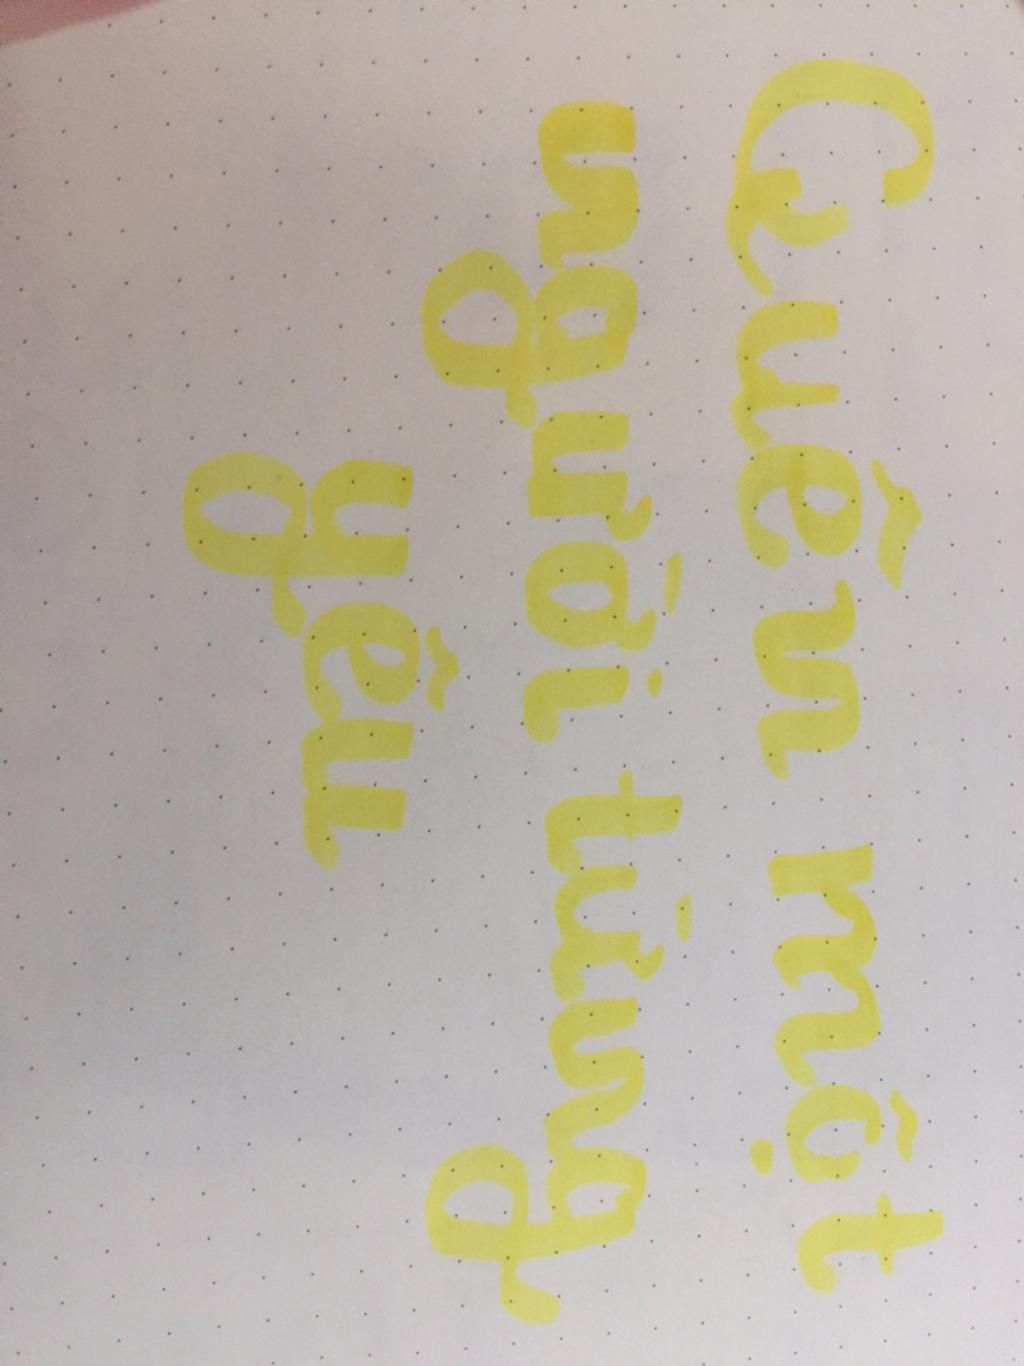 Quên một
người từng
yêu